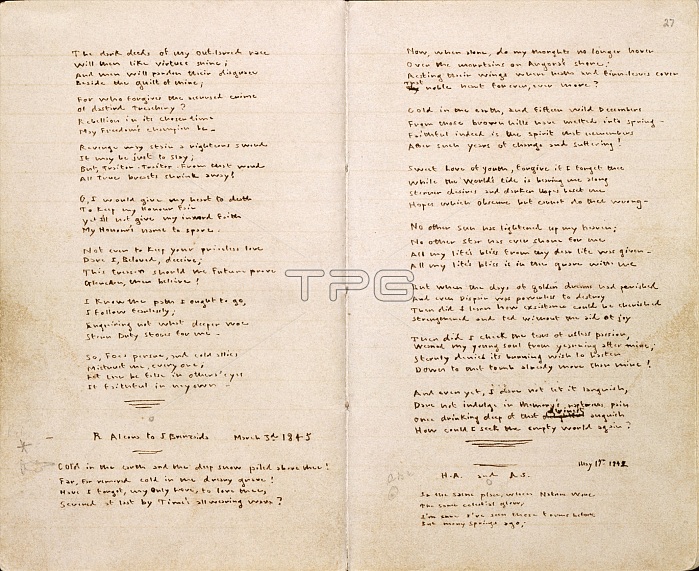 The dark deeds of my outlawed race
Will then like virtues shine;
And men will pardon their disgrace
Beside the guilt of mine;
For who forgives the accursed crime
Of dastard Treachery?
Rebellion in its chosen time
May Freedom's champion be -
Revenge may stain a righteous sword
It may be just to slay;
But, Traitor - Traitor - From that word
All True breasts shrink away!
O, I would give my heart to death
To Keep my Honour Fair
yet I'll not give my inward Faith
My Honour's name to spare.
Not even to Keep your priceless love
Dare I, Beloved, deceive;
This treason should the Future prove
Gleneden, then believe!
I Know the path I ought to go,
I Follow Fearlessly;
Enquiring not what deeper woe
Stern Duty stores For me -
So, Foes pursue, and cold allies
Mistrust me, every one;
Let me be False in others' eyes
If Faithful in my own -
R Alcona to J Brenzaida March 3rd 1845
Cold in the earth and the deep snow piled above thee!
Far, Far removed cold in the dreary grave!
Have I forgot, my Only Love, to love thee,
Severed at last by Time's all wearing wave?
27
Now, when alone, do my thoughts no longer hover
Over the mountains on Angora's shore;
Resting their wings where heath and Fern-leaves cover
That noble heart for ever, ever more?
Cold in the earth, and fifteen wild Decembers
From those brown hills have melted into spring -
Faithful indeed is the spirit that remembers
After such years of change and suffering!
Sweet Love of youth, Forgive if I forget thee
While the World's tide is bearing me along
Sterner desires and darker Hopes beset me
Hopes which obscure but cannot do thee wrong -
No other Sun has lightened up my heaven;
No other Star has ever shone for me
All my life's bliss from thy dear life was given -
All my life's bliss is in the grave with thee
But when the days of golden dreams had perished
And even Despair was powerless to destroy
Then did I learn how existence could be cherished
Strengthened and fed without the aid of joy
Then did I check the tears of useless passion,
Weaned my young soul from yearning after thine;
Sternly denied its burning wish to hasten
Down to that tomb already more than mine!
And even yet, I dare not let it languish,
Dare not indulge in Memory's rapturous pain
Once drinking deep of that divinest anguish
How could I seek the empty world again?
H.A. and A.S. May 17th 1842
In the same place, when Nature wore
The same celestial glow,
I'm sure I've seen these forms before
But many springs ago;
TPG